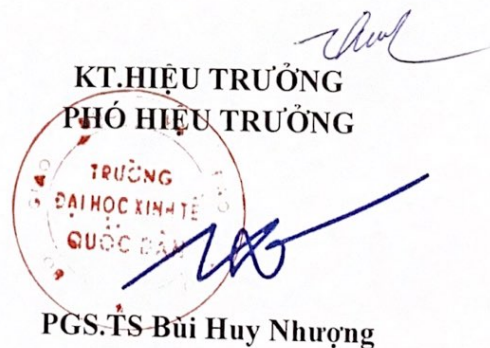 KT.HIỆU TRƯỞNG
PHÓ HIỆU TRƯỞNG
TRƯỜNG
ĐẠI HỌC KINH TẾ
QUỐC DÂN
PGS.TS Bùi Huy Nhượng